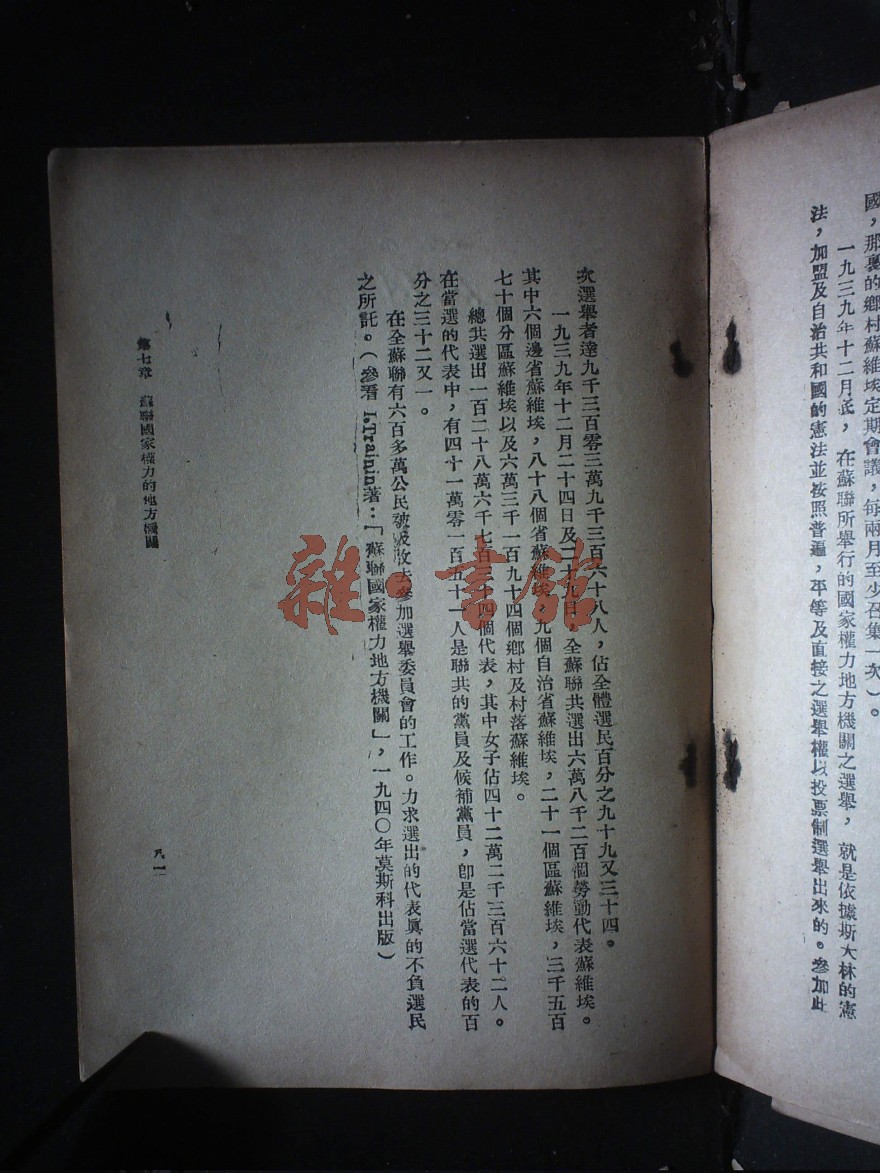 國，那裏的鄉村蘇維埃定期會議，每兩月至少召集一次）。
一九三九年十二月底，在蘇聯所舉行的國家權力地方機關之選舉，就是依據斯大林的憲
法，加盟及自治共和國的憲法並按照普遍，平等及直接之選舉權以投票制選舉出來的。參加此
次選舉者達九千三百零三萬九千三百六十八人，佔全體選民百分之九十九又三十四。
一九三九年十二月二十四日及二十九日，全蘇聯共選出六萬八千二百個勞動代表蘇維埃。
其中六個邊省蘇維埃，八十八個省蘇維埃，九個自治省蘇維埃，二十一個區蘇維埃，三千五百
七十個分區蘇維埃以及六萬三千一百九十四個鄉村及村落蘇維埃。
總共選出一百二十八萬六千七百三十四個代表，其中女子佔四十二萬二千三百六十二人。
在當選的代表中，有四十一萬零一百五十一人是聯共的黨員及候補黨員，卽是佔當選代表的百
分之三十二又一。
在全蘇聯有六百多萬公民被吸收去參加選舉委員會的工作。力求選出的代表眞的不負選民
之所託。（參看 I.Trainin著：「蘇聯國家權力地方機關」，一九四〇年莫斯科出版）
第七章 蘇聯國家權力的地方機關
八一
雜·書館